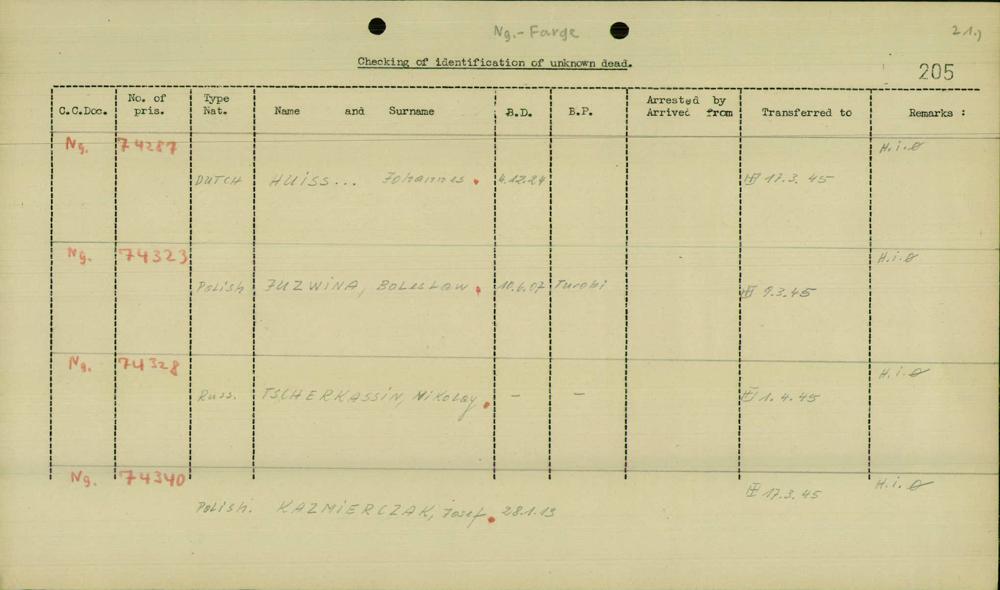 Ng.-Farge
21.)
Checking of identification of unknown dead.
205
C.C.Doc. No. of pris. Type Nat. Name and Surname B.D. B.P. Arrested by Arrived from Transferred to Remarks :
Ng. 74287 H.i.
DUTCH HUISS... Johannes. 4.12.24 17.3.45
Ng. 74323 H.i.
Polish JUZWINA, BOLESLAW. 10.6.07 Turobi 9.3.45
Ng. 74328 H.i.
Russ. TSCHERKASSIN, Nikolay. - - 1.4.45
Ng. 74340 17.3.45 H.i.
Polish. KAZMIERCZAK, Josef. 28.1.13